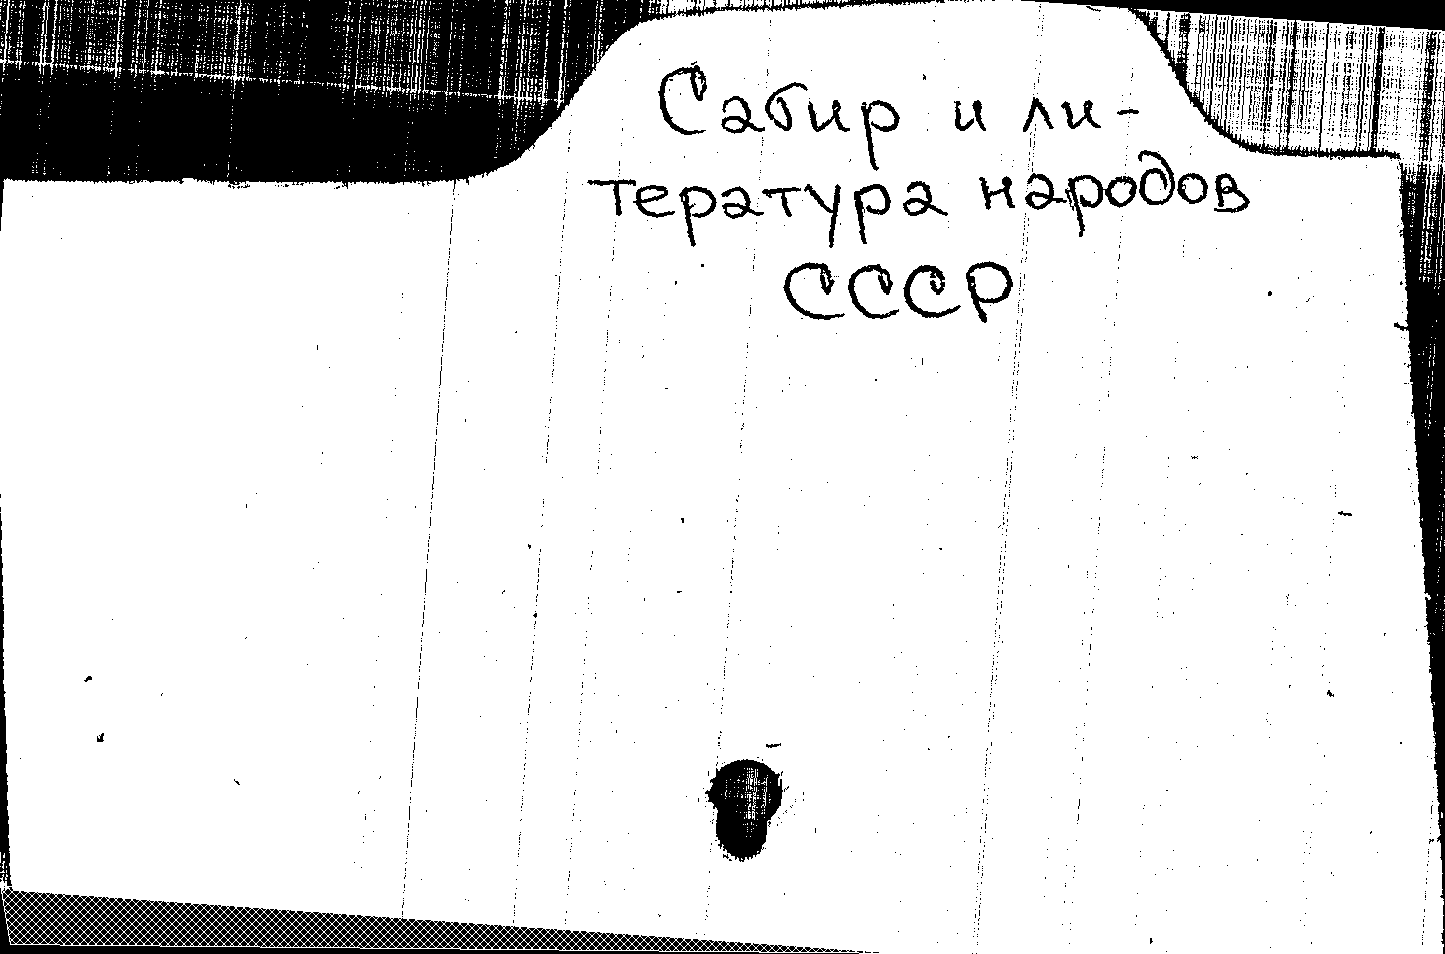 Сабир и ли-
тература народов
СССР